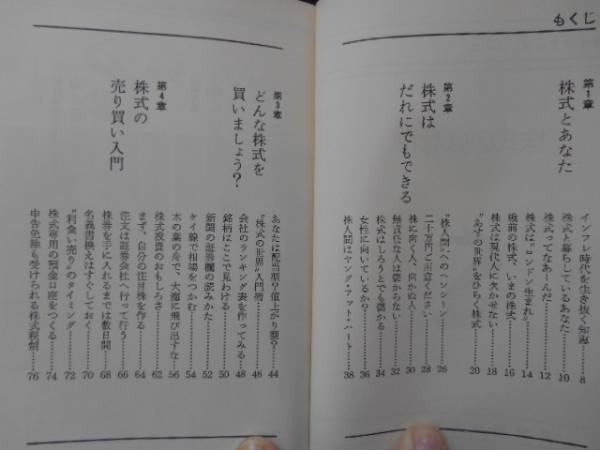 もくじ
第1章
株式とあなた
インフレ時代を生き抜く知恵………8
株式と暮らしているあなた………10
株式ってなあーんだ………12
株式は〝ロンドン生まれ〟………14
戦前の株式、いまの株式………16
株式は現代人に欠かせない………18
〝あすの世界〟をひらく株式………20
第2章
株式は
だれにでもできる
〝株人間〟へのヘンシーン………26
二十万円ご用意ください………28
株に向く人、向かぬ人………30
無責任な人は儲からない………32
株式はしろうとでも儲かる………34
女性に向いているか?………36
株人間はヤング・アット・ハート………38
第3章
どんな株式を
買いましょう?
あなたは配当型?値上がり型?………44
〝株式の世界〟入門篇………46
会社のランキング表を作ってみる………48
銘柄はここで見わける………50
新聞の証券欄の読みかた………52
ケイ線で相場をつかむ………54
木の葉の舟で、大海に飛び出すな………56
株式投資のおもしろさ………62
第4章
株式の
売り買い入門
まず、自分の注目株を作る………64
注文は証券会社へ行って行う………66
株券を手に入れるまでは数日間………68
名義書換えはすぐしておく………70
〝利食い売り〟のタイミング………72
株式専用の預金口座をつくる………74
申告免除も受けられる株式税制………76